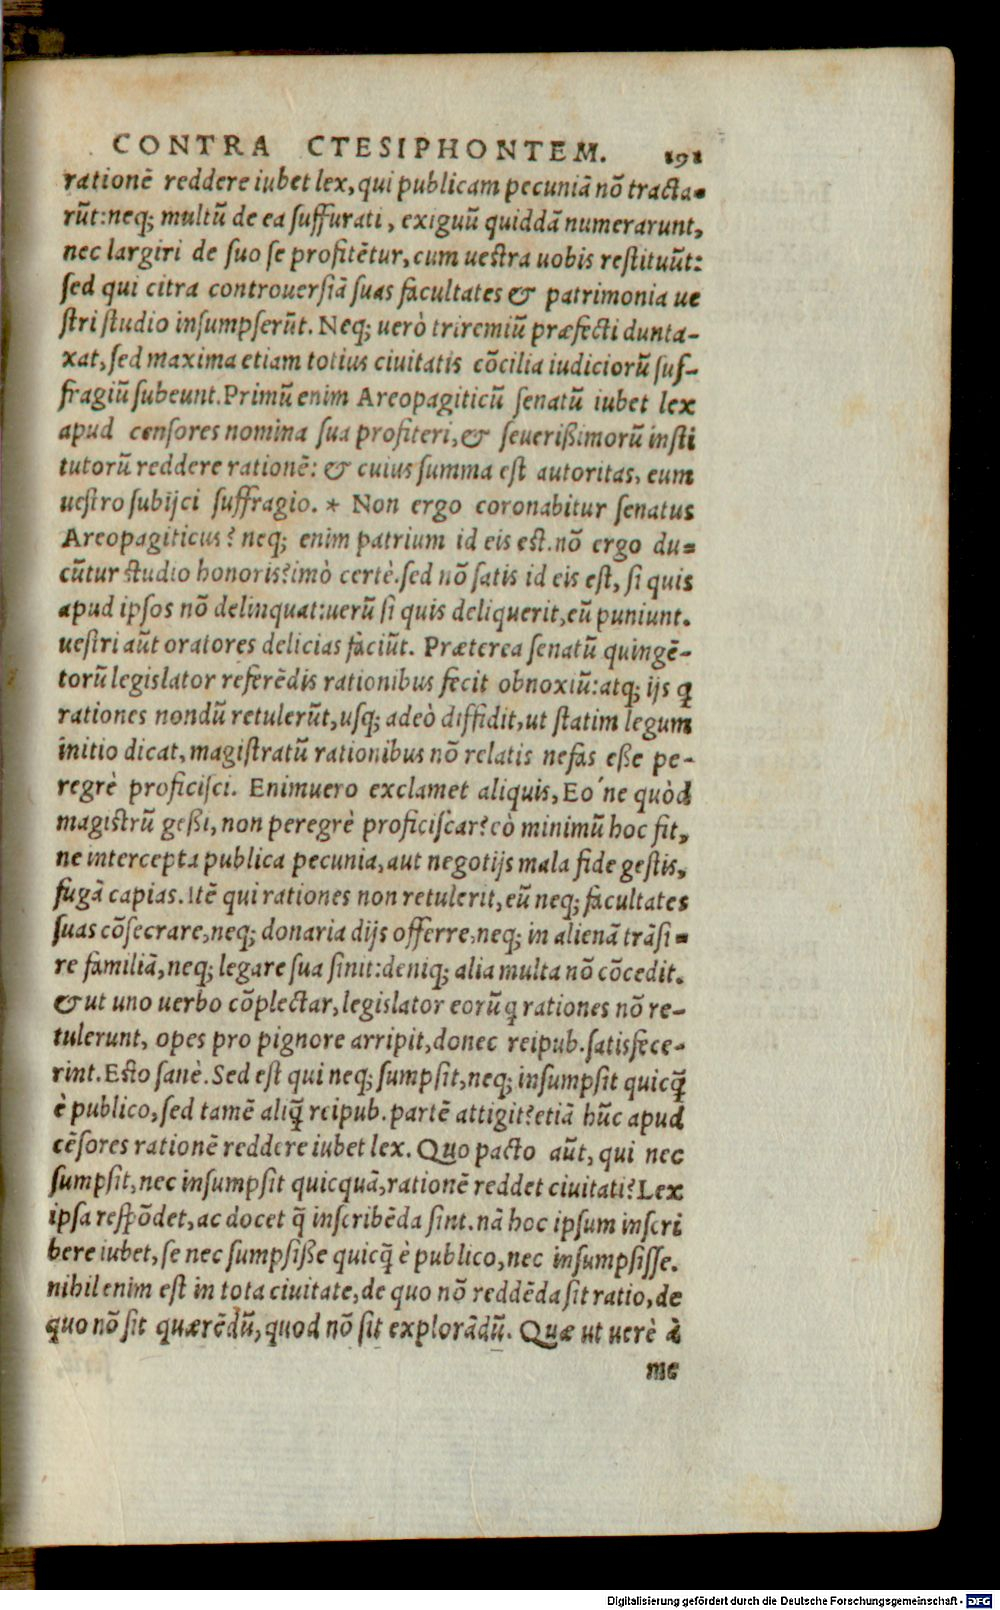 CONTRA CTESIPHONTEM. 191
rationē reddere iubet lex, qui publicam pecuniā nō tracta-
rūt: neq; multū de ea suffurati, exiguū quiddā numerarunt,
nec largiri de suo se profitētur, cum uestra uobis restituūt:
sed qui citra controuersiā suas facultates & patrimonia ue
stri studio insumpserūt. Neq; uerò triremiū præfecti dunta-
xat, sed maxima etiam totius ciuitatis cōcilia iudiciorū suf-
fragiū subeunt. Primū enim Areopagiticū senatū iubet lex
apud censores nomina sua profiteri, & seuerißimorū insti
tutorū reddere rationē: & cuius summa est autoritas, eum
uestro subijci suffragio. * Non ergo coronabitur senatus
Areopagiticus? neq; enim patrium id eis est. nō ergo du-
cūtur studio honoris? imò certè. sed nō satis id eis est, si quis
apud ipsos nō delinquat: uerū si quis deliquerit, eū puniunt.
uestri aūt oratores delicias faciūt. Præterea senatū quingē-
torū legislator referēdis rationibus fecit obnoxiū: atq; ijs q̄
rationes nondū retulerūt, usq; adeò diffidit, ut statim legum
initio dicat, magistratū rationibus nō relatis nefas eße pe-
regrè proficisci. Enimuero exclamet aliquis, Eó ne quòd
magistrū geßi, non peregrè proficiscar? eò minimū hoc fit,
ne intercepta publica pecunia, aut negotijs mala fide gestis,
fugā capias. Itē qui rationes non retulerit, eū neq; facultates
suas cōsecrare, neq; donaria dijs offerre, neq; in alienā trāsi-
re familiā, neq; legare sua sinit: deniq; alia multa nō cōcedit.
& ut uno uerbo cōplectar, legislator eorū q̄ rationes nō re-
tulerunt, opes pro pignore arripit, donec reipub. satisfece-
rint. Esto sanè. Sed est qui neq; sumpsit, neq; insumpsit quicq̄
è publico, sed tamē aliq̄ reipub. partē attigit? etiā hūc apud
cēsores rationē reddere iubet lex. Quo pacto aūt, qui nec
sumpsit, nec insumpsit quicquā, rationē reddet ciuitati? Lex
ipsa respōdet, ac docet q̄ inscribēda sint. nā hoc ipsum inscri
bere iubet, se nec sumpsiße quicq̄ è publico, nec insumpsisse.
nihil enim est in tota ciuitate, de quo nō reddēda sit ratio, de
quo nō sit quærēdū, quod nō sit explorādū. Quæ ut uerè à
me
Digitalisierung gefördert durch die Deutsche Forschungsgemeinschaft - DFG